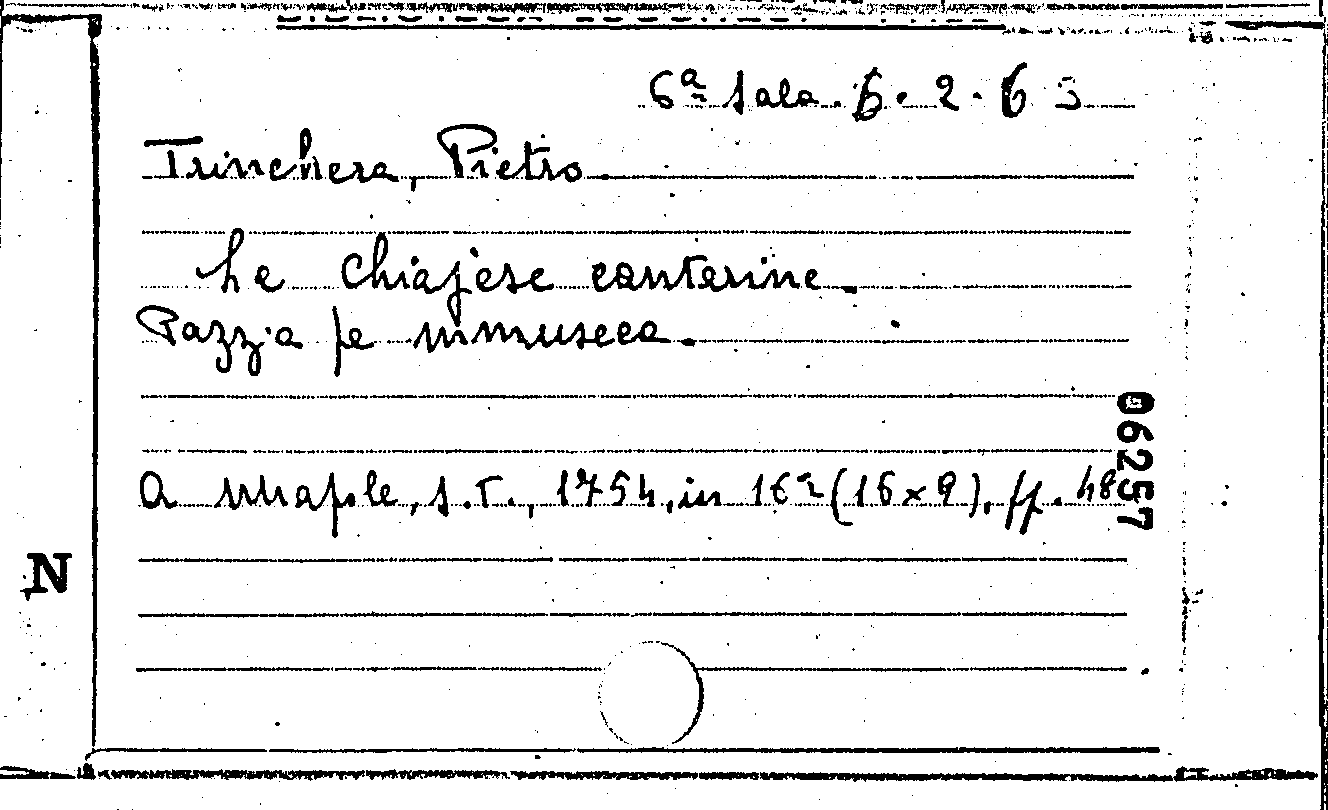 6ª Sala. 6. 2. 63
Trinchera, Pietro
Le Chiajese canterine.
Pazzia pe mmuseca.
A Nnapole, s.T., 1754, in 16º (16x9), pp. 48
06257
N